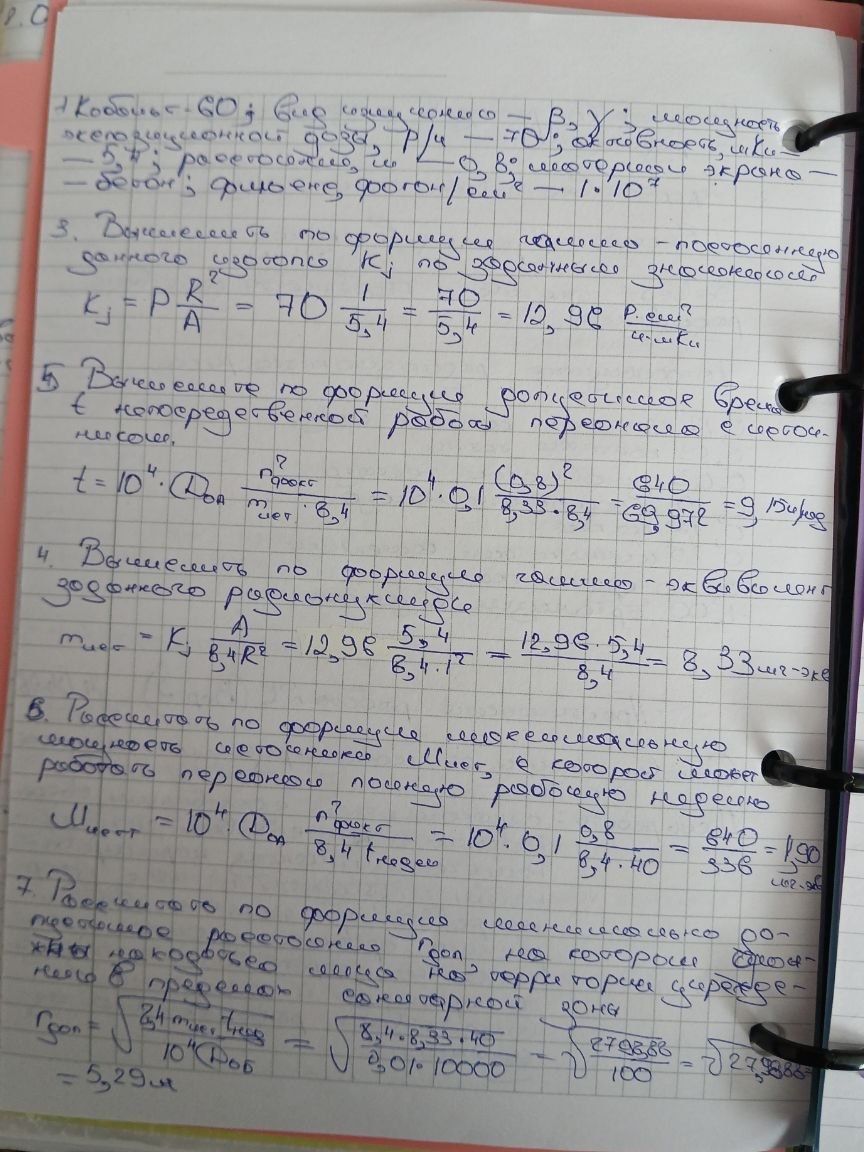 1. Кобальт-60; вид излучения — β, γ; мощность
экспозиционной дозы, Р/ч — 70; активность, мКи —
— 5,4; расстояние, м — 0,8; материал экрана —
— бетон; флюенс, фотон/см² — 1·10⁷
3. Вычислить по формуле гамма-постоянную
данного изотопа Kj по заданным значениям
Kj = P R²/A = 70 1/5,4 = 70/5,4 = 12,96 Р·см²/ч·мКи
5 Вычислите по формуле допустимое время
t непосредственной работы персонала с источ-
ником.
t = 10⁴ · Dод r²факт/mист·8,4 = 10⁴·0,1 (0,8)²/8,33·8,4 = 640/69,972 = 9,15
4. Вычислить по формуле гамма-эквивалент
заданного радионуклида
mист = Kj A/8,4R² = 12,96 5,4/8,4·1² = 12,96·5,4/8,4 = 8,33 мг-экв
6. Рассчитать по формуле максимальную
мощность источника Mист, с которой может
работать персонал полную рабочую неделю
Mист = 10⁴ · Dод r²факт/8,4 tнедел = 10⁴·0,1 0,8/8,4·40 = 640/336 = 1,90
мг-эв
7. Рассчитать по формуле минимально до-
пустимое расстояние rдоп, на котором
находиться лица на территории учрежде-
ния в пределах санитарной зоны
rдоп = √8,4 mист tнед/10⁴Dоб = √8,4·8,33·40/0,01·10000 = √2798,88/100 = √27,9888=
= 5,29м